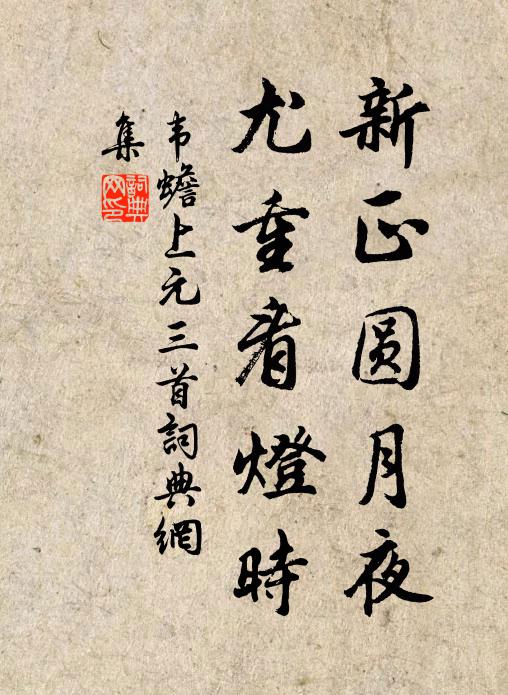 新正圆月夜
尤重看燈時
韦蟾上元三首詞典網
集
詞典
网印